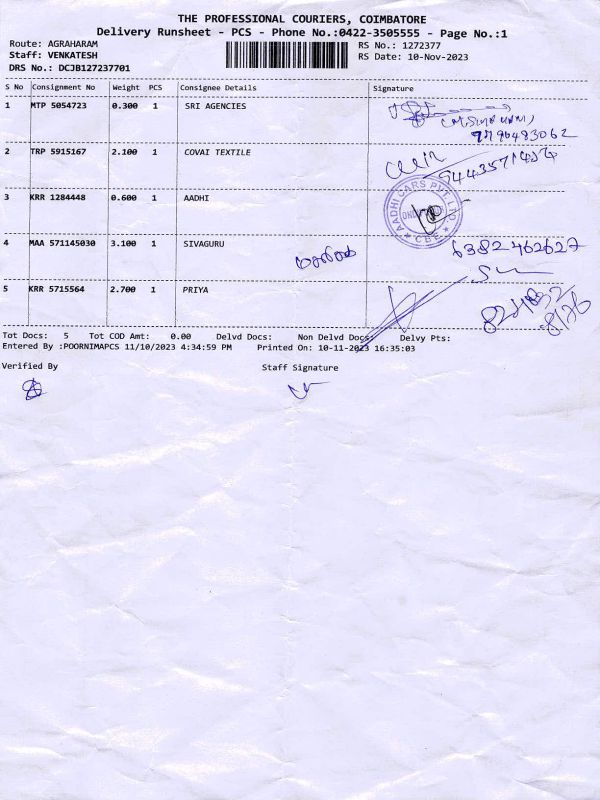 THE PROFESSIONAL COURIERS, COIMBATORE
Delivery Runsheet - PCS - Phone No.:0422-3505555 - Page No.:1
Route: AGRAHARAM
Staff: VENKATESH
DRS No.: DCJB127237701
RS No.: 1272377
RS Date: 10-Nov-2023
S No Consignment No Weight PCS Consignee Details Signature
1 MTP 5054723 0.300 1 SRI AGENCIES
2 TRP 5915167 2.100 1 COVAI TEXTILE
3 KRR 1284448 0.600 1 AADHI
AADHI CARS PVT LTD
CBE
4 MAA 571145030 3.100 1 SIVAGURU
6382462627
5 KRR 5715564 2.700 1 PRIYA
Tot Docs: 5 Tot COD Amt: 0.00 Delvd Docs: Non Delvd Docs: Delvy Pts:
Entered By :POORNIMAPCS 11/10/2023 4:34:59 PM Printed On: 10-11-2023 16:35:03
Verified By Staff Signature